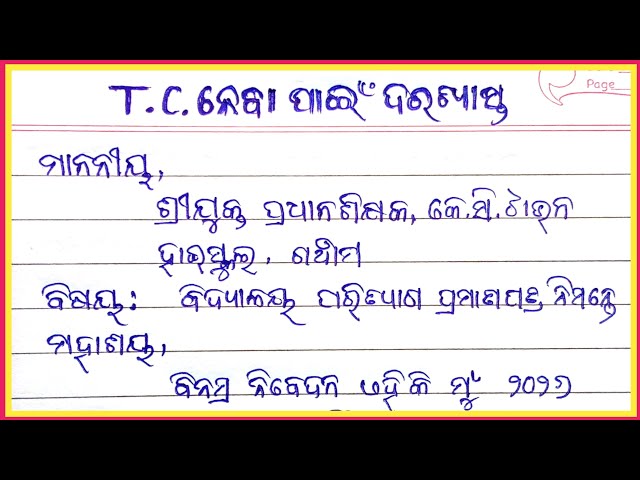 Page
T.C. ନେବା ପାଇଁ ଦରଖାସ୍ତ
ମାନନୀୟ,
ଶ୍ରୀଯୁକ୍ତ ପ୍ରଧାନଶିକ୍ଷକ, କେ.ସି.ଟାଉନ
ହାଇସ୍କୁଲ, ଗଞ୍ଜାମ
ବିଷୟ: ବିଦ୍ୟାଳୟ ପରିତ୍ୟାଗ ପ୍ରମାଣପତ୍ର ନିମନ୍ତେ
ମହାଶୟ,
ବିନମ୍ର ନିବେଦନ ଏହିକି ମୁଁ ୨୦୨୬